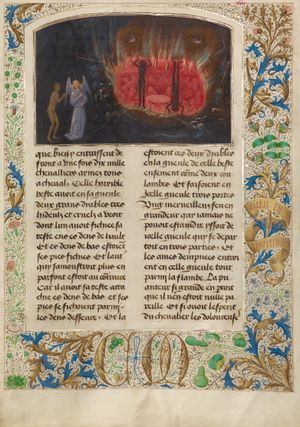 que bien y entraissent de
front a une fois dix mille
chevalliers armes tous
a cheval Celle horrible
beste avoit en sa gueule
deux grans dyables tres
hideux et cruelz a veoir
dont lun avoit fichie sa
teste ens es dens de hault
Et es dens de bas estoient
ses pies fichies Et lautre
quy samonstroit plus en
parfont estoit au contraire
Car il avoit sa teste atta
chie es dens de bas et les
pies se fichoient parmy
les dens desseure Et la
estoient ces deux dyables
en la gueule de celle beste
ensement come deux co
lombes Et faisoient en
icelle gueule trois portes
Ung merveilleux feu
grant quy jamais ne
povoit estaindre yssoit de
celle gueule quy se depar
toit en trois parties Et
les ames dempnees entroi
ent en celle gueule tout
parmy la flambe La pu
anteur si grande en
que il nen estoit nulle pa
reille Et si avoit lesperit
du chevalier les doloreuse
CM